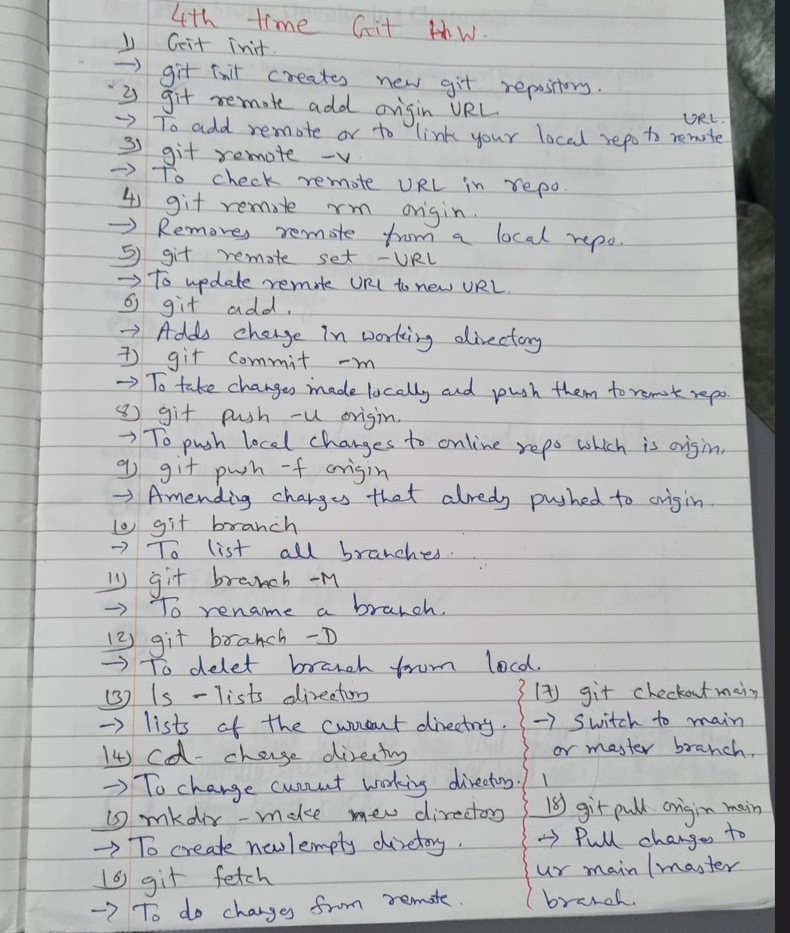 4th time Git H.W.
1) Git init.
→ git init creates new git repository.
2) git remote add origin URL
→ To add remote or to link your local repo to remote URL.
3) git remote -v
→ To check remote URL in repo.
4) git remote rm origin.
→ Removes remote from a local repo.
5) git remote set -URL
→ To update remote URL to new URL.
6) git add.
→ Adds change in working directory
7) git commit -m
→ To take changes made locally and push them to remote repo.
8) git push -u origin.
→ To push local changes to online repo which is origin.
9) git push -f origin
→ Amending changes that alredy pushed to origin.
10) git branch
→ To list all branches.
11) git branch -M
→ To rename a branch.
12) git branch -D
→ To delet branch from local.
13) ls - lists directory
→ lists of the current directory.
14) cd - change directry
→ To change current working directory.
15) mkdir - make new directory
→ To create new/empty diretory.
16) git fetch
→ To do changes from remote.
17) git checkout main
→ Switch to main
or master branch.
18) git pull origin main
→ Pull changes to
ur main/master
branch.